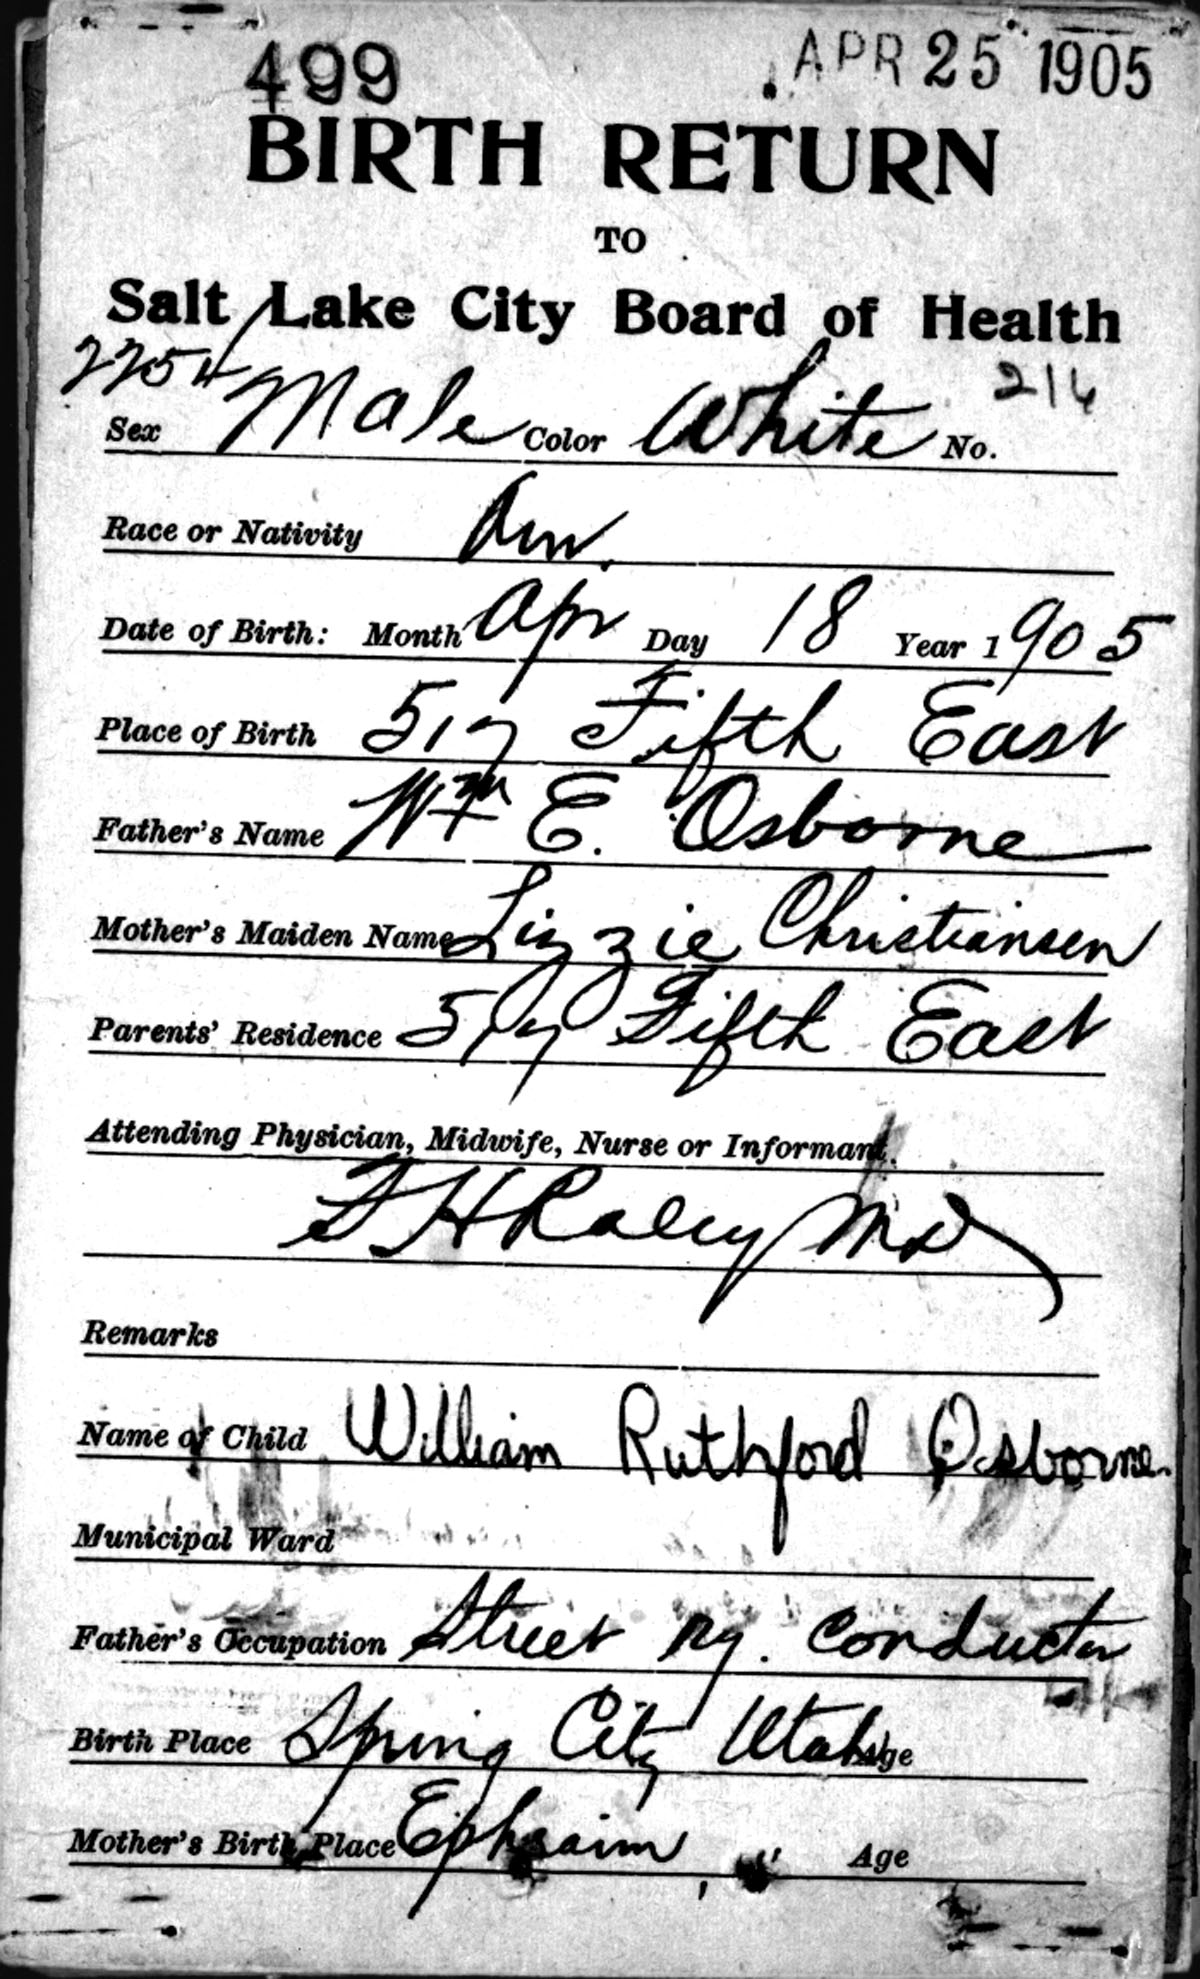 499 APR 25 1905
BIRTH RETURN
TO
Salt Lake City Board of Health
2254 216
Sex Male Color White No.
Race or Nativity Am.
Date of Birth: Month Apr Day 18 Year 1905
Place of Birth 517 Fifth East
Father's Name Wm E. Osborne
Mother's Maiden Name Lizzie Christiansen
Parents' Residence 517 Fifth East
Attending Physician, Midwife, Nurse or Informant.
F H Raley MD
Remarks
Name of Child William Ruthford Osborne.
Municipal Ward
Father's Occupation Street Ry. Conductor
Birth Place Spring City Utah Age
Mother's Birth Place Ephraim , " Age